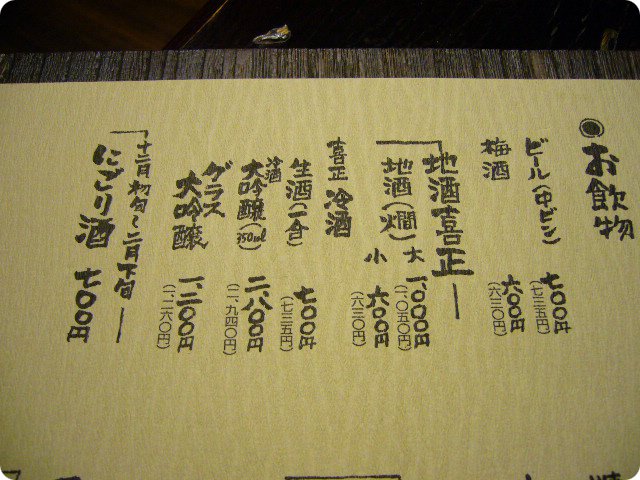 ◉お飲物
ビール(中ビン) 七〇〇円
(七三五円)
梅酒 六〇〇円
(六三〇円)
「地酒喜正」
地酒(燗) 大 一、〇〇〇円
(一、〇五〇円)
小 六〇〇円
(六三〇円)
喜正 冷酒
生酒(一合) 七〇〇円
(七三五円)
冷酒 大吟醸(350ml) 二、八〇〇円
(二、九四〇円)
グラス 大吟醸 一、二〇〇円
(一、二六〇円)
「十二月初旬〜二月下旬
にごり酒 七〇〇円